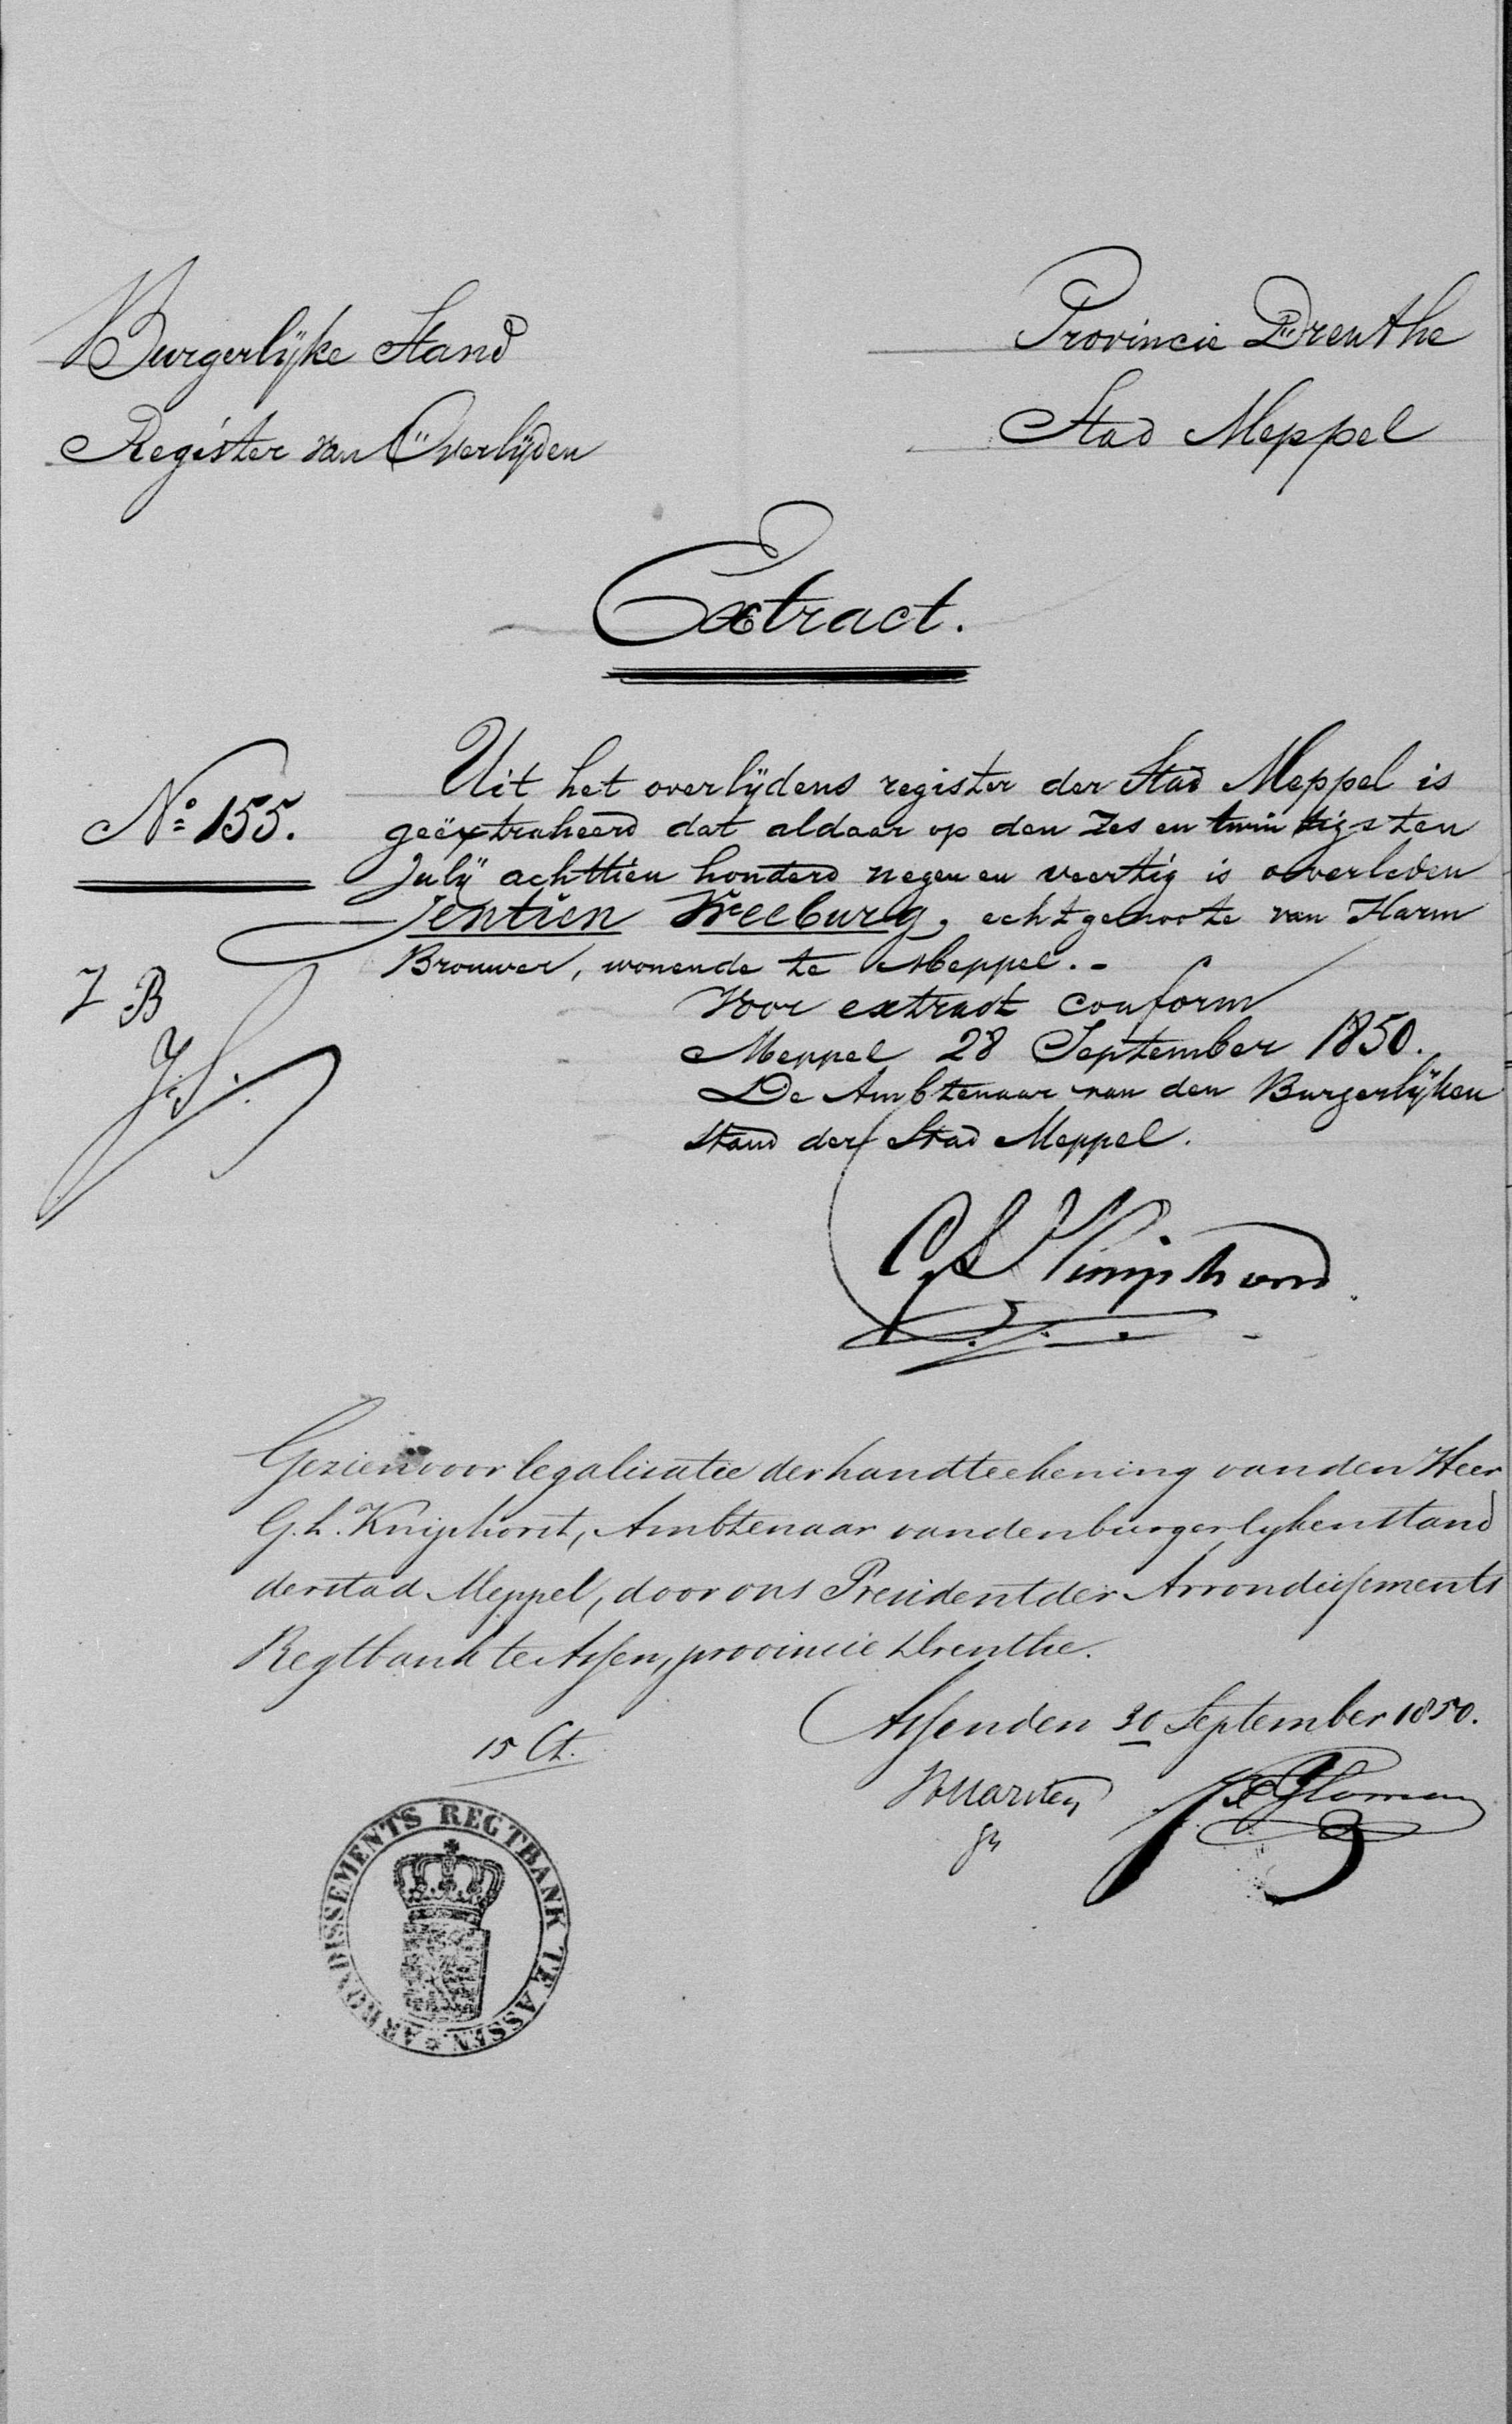 Burgerlijke Stand
Register van Overlijden
Provincie Drenthe
Stad Meppel
Extract.
No 155.
Uit het overlijdens register der Stad Meppel is
geëxtraheerd dat aldaar op den zes en twintigsten
July achttien honderd negen en veertig is overleden
Jentien Kleeburg, echtgenoote van Harm
Brouwer, wonende te Meppel. -
Voor extract conform
Meppel 28 September 1850.
De Ambtenaar van den Burgerlijken
Stand der Stad Meppel.
J B
Gezien voor legalisatie der handteekening van den Heer
G. L. Kniphorst, Ambtenaar van den burgerlyken stand
der stad Meppel, door ons President der Arrondissements
Regtbank te Assen, provincie Drenthe.
Assen den 30 September 1850.
15 Ct.
ARRONDISSEMENTS REGTBANK TE ASSEN